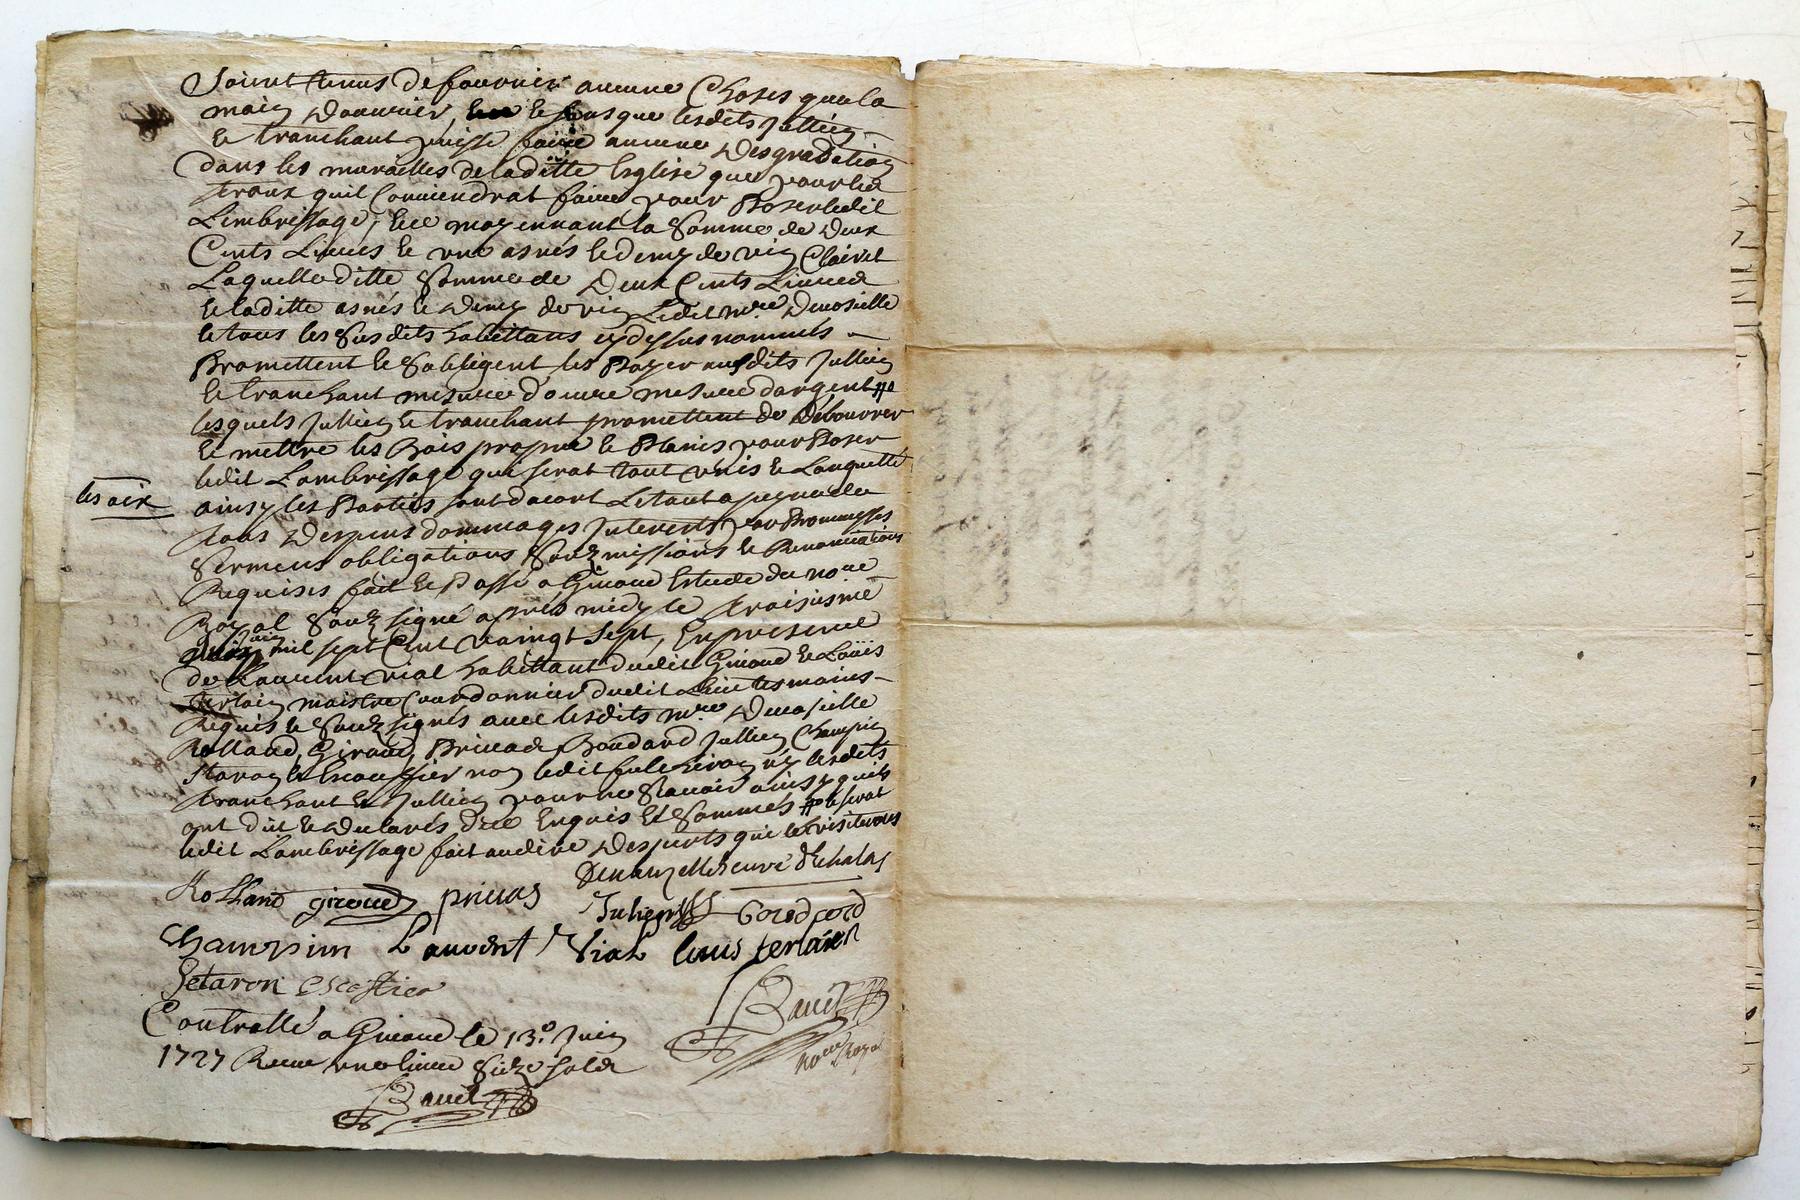 Soient tenus de fournir aucune Choses que la
main Douurier, et sans que lesdits Jullien
le tranchant puisse faire aucune Desgradation
dans les murailles de laditte Esglise que pour les
traux quil Conuiendrat faire pour Poser ledit
Lembrissage, et ce moyennant la Somme de Deux
Cents Liures et vne asnés et demy de vin Clairet
Laquelle ditte Somme de Deux Cents Liures
et laditte asnés et Demy de vin Ledit mre Demoselle
et tous les Susdits habittans cy dessus nommés
Promettent et Sobligent les Payer ausdits Jullien
le tranchant mesure d'ouure mesure dargent #
lesquels Jullien le tranchant promettent de Debourrer
et mettre les Bois propre et Planis pour Poser
les aix
ledit Lambrissage qui serat tout vnis et Languetté
ainsy les Parties sont dacort Letout a peyne de
tous Despens dommages Interests par Promesses
Sermens obligations Soubmissions et Renonciations
Requises fait et Passé a Giuord Estude du nore
Royal Soubzsigné apprés midy le troisiesme
juin mil sept Cent vaingt sept, En presence
de Laurent vial habittant dudit Giuord et Louis
terlain maistre Courdonnier dudit Lieu tesmoins
Requis et Soubzsignés auec lesdits mre Demoselle
Rolland, Giraud, Priuas Boudard Jullien Champin
lesdits
tranchant et Jullien pour ne Scauoir ainsy quils
ont dit et declarés de ce Enquis Et Sommés # et serat
ledit Lambrissage fait audire Desperts qui le visiterons
Rolland giroud priuas
Champin Lauoent Vial louis terlain
Controllé a Giuord le 13.e Juin
1727 Receu vne liure Size sols
Nore Royal